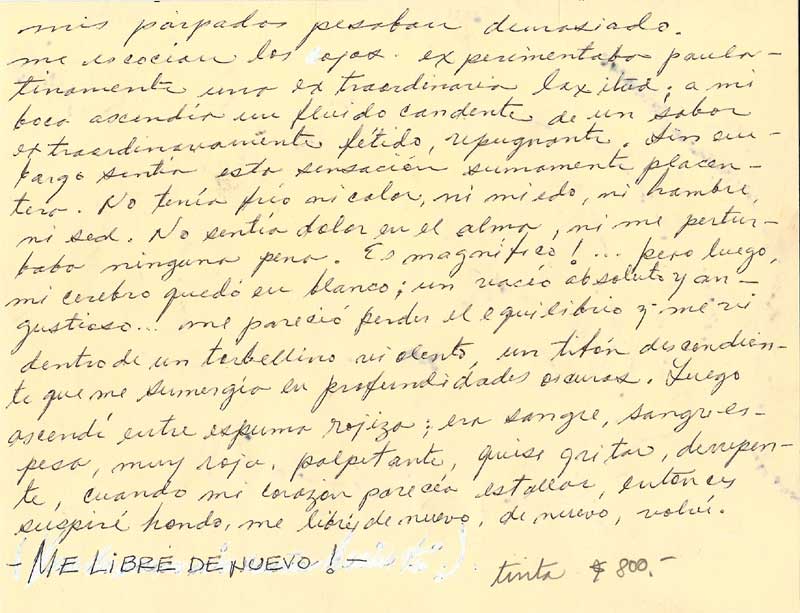 mis párpados pesaban demasiado.
me escocían los ojos. experimentaba paula-
tinamente una extraordinaria laxitud; a mi
boca ascendía un fluido candente de un sabor
extraordinariamente fétido, repugnante. Sin em-
bargo sentía esta sensación sumamente placen-
tera. No tenía frío ni calor, ni miedo, ni hambre,
ni sed. No sentía dolor en el alma, ni me pertur-
baba ninguna pena. Es magnífico! ... pero luego,
mi cerebro quedó en blanco; un vacío absoluto y an-
gustioso... me pareció perder el equilibrio y me vi
dentro de un torbellino violento, un tifón descendien-
te que me sumergía en profundidades oscuras. Luego
ascendí entre espuma rojiza; era sangre, sangre es-
pesa, muy roja, palpitante, quise gritar, derrepen-
te, cuando mi corazón parecía estallar, entonces
suspiré hondo, me libré de nuevo, de nuevo, volví.
- ME LIBRÉ DE NUEVO! -
tinta $ 800.-